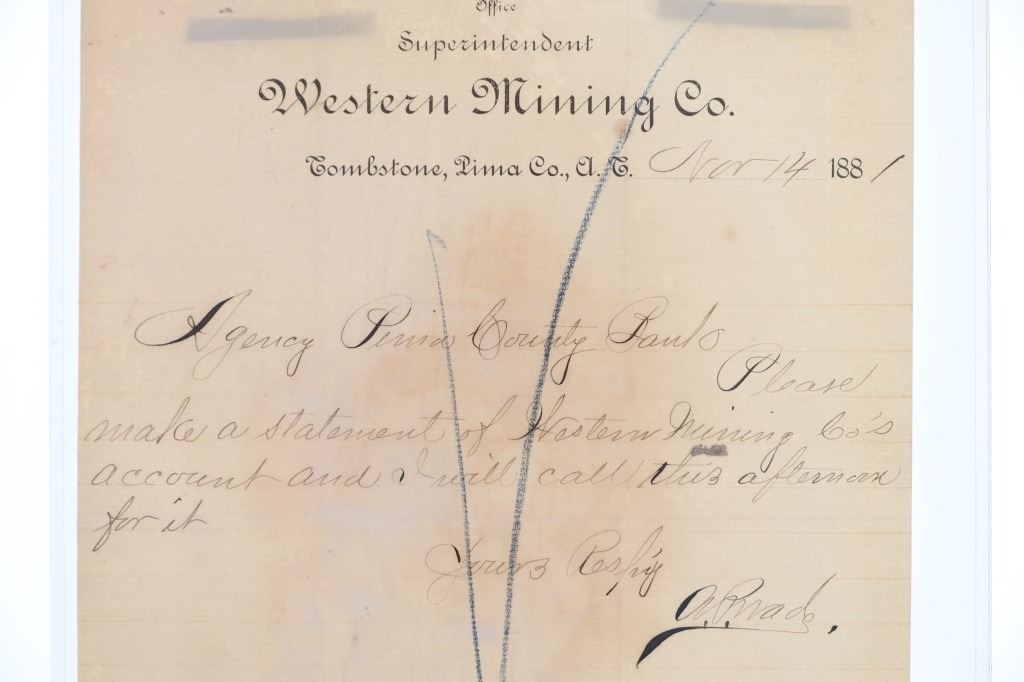 Office
Superintendent
Western Mining Co.
Tombstone, Pima Co., A.T. Nov 14 1881
Agency Pima County Bank
Please
make a statement of Western Mining Co's
account and I will call this afternoon
for it
Yours Resp'y